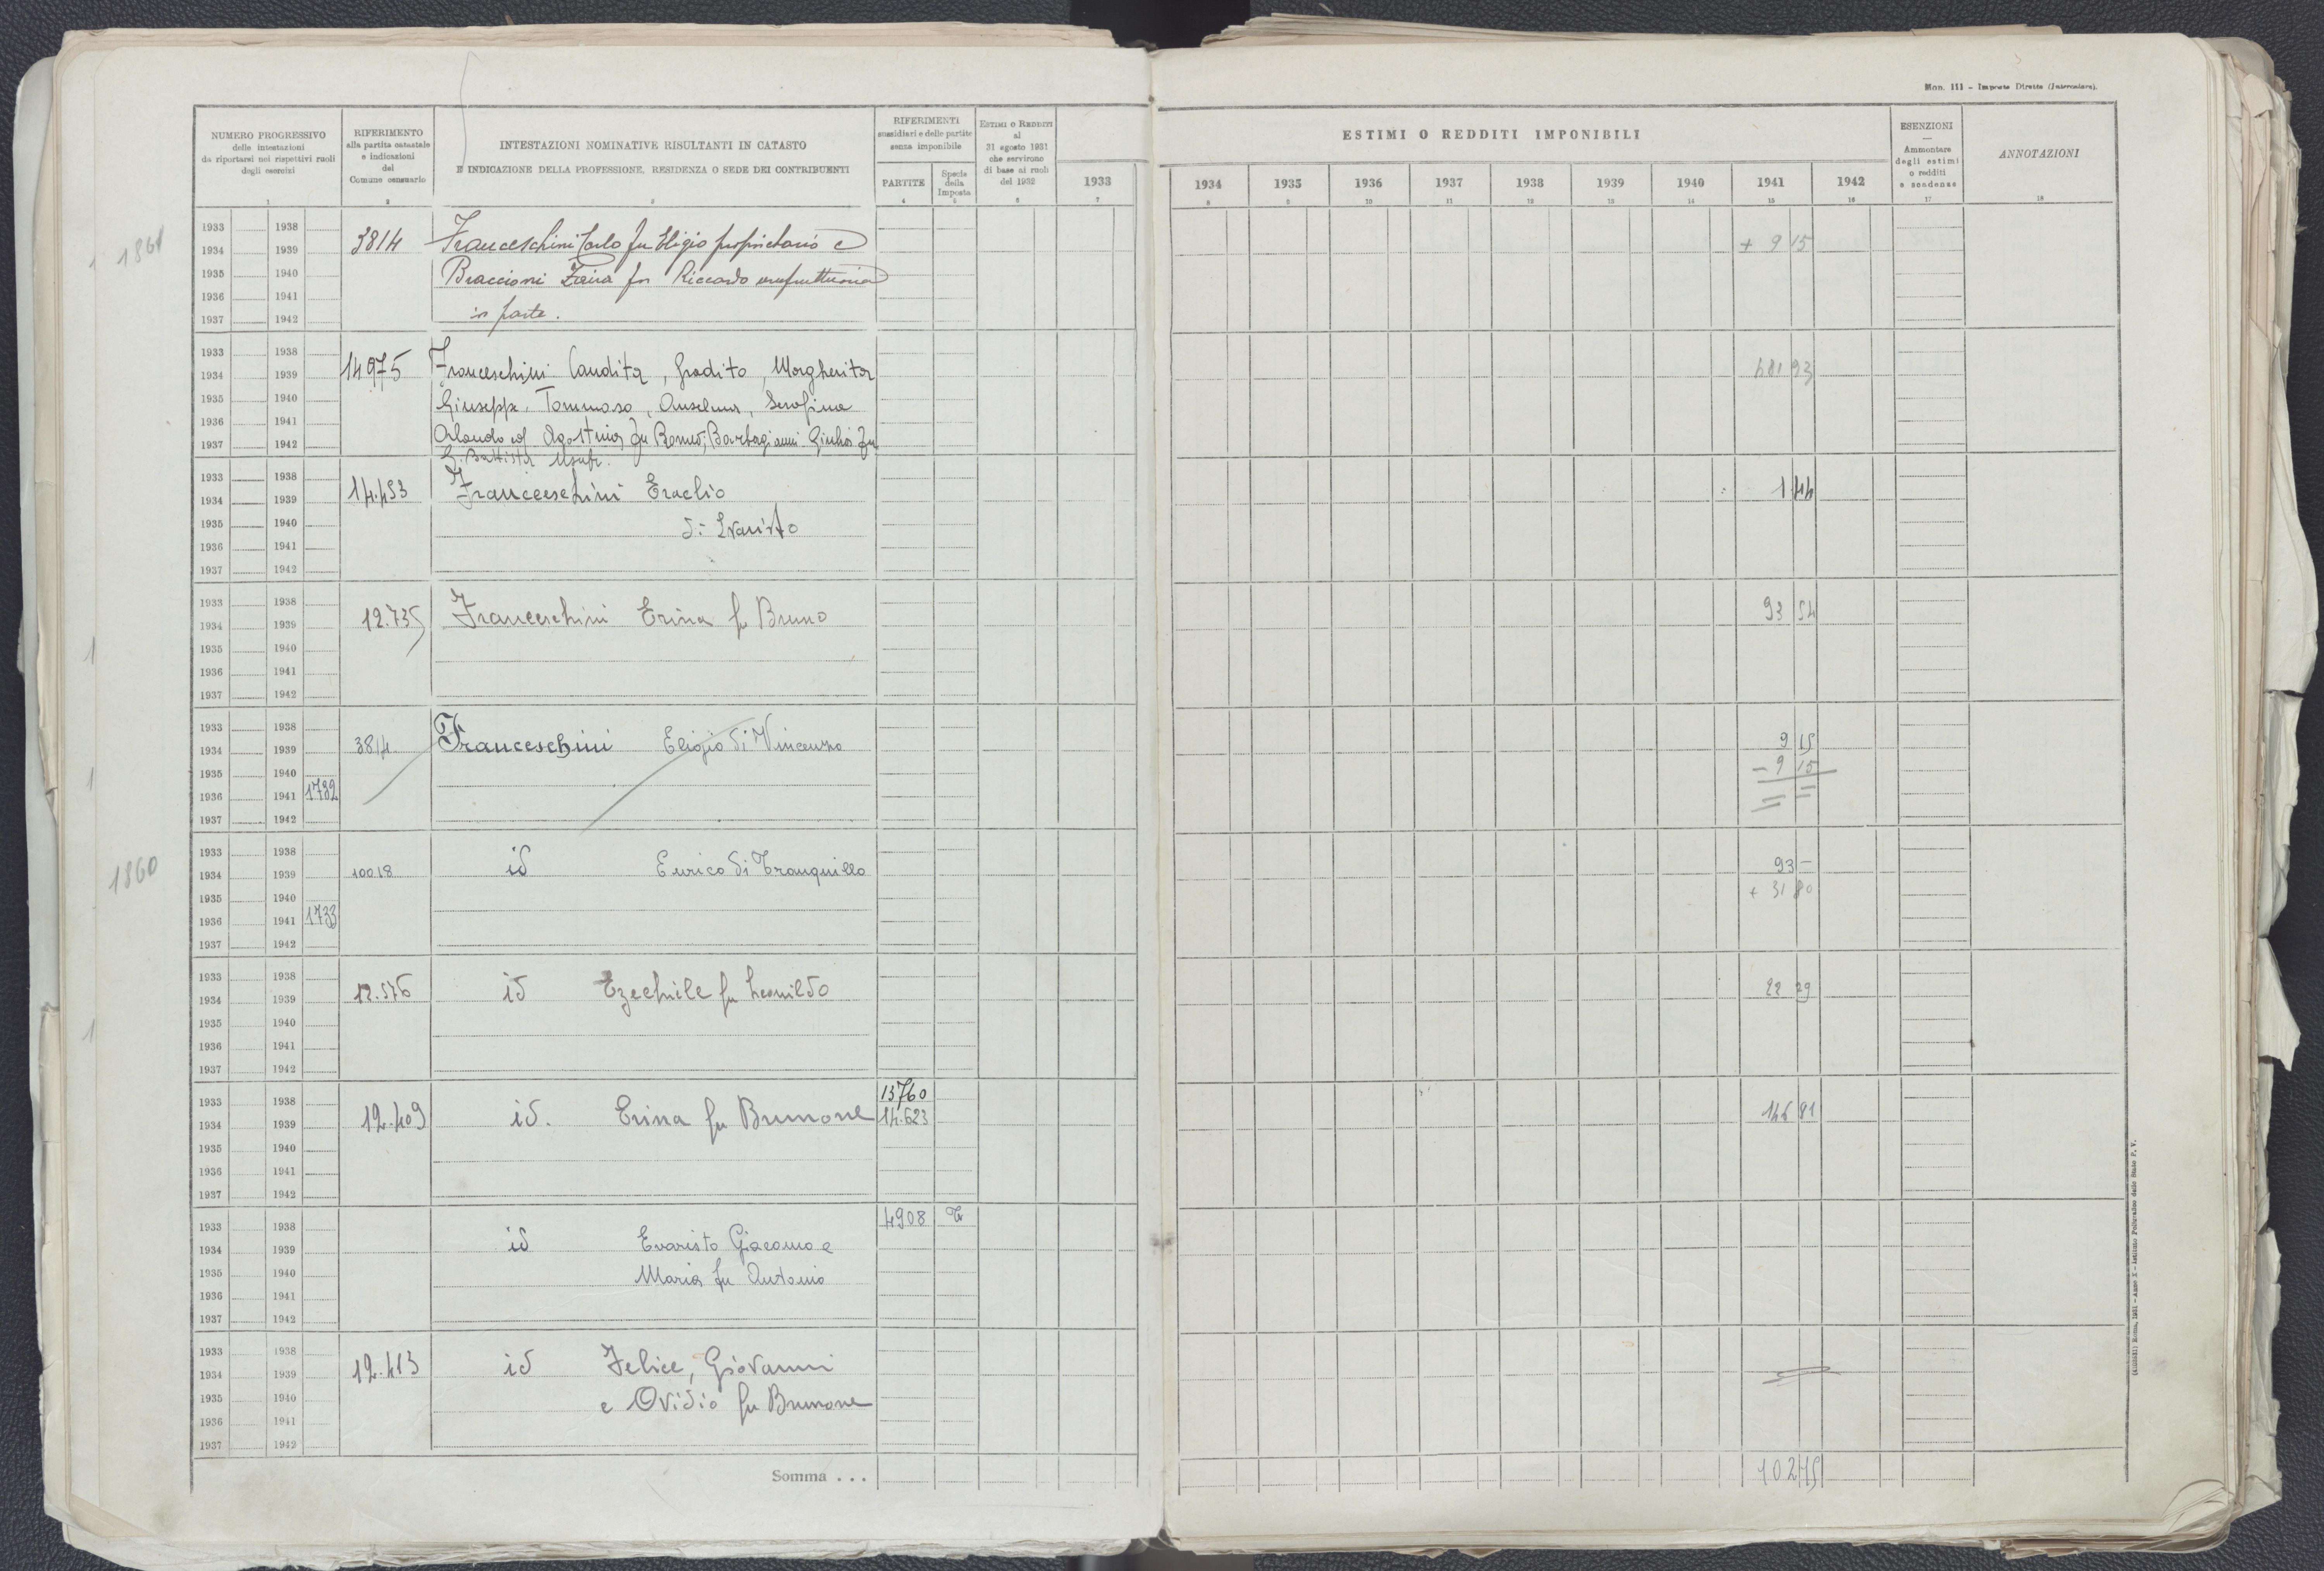 Mon. 111 - Imposte Dirette (Intercalare).
NUMERO PROGRESSIVO
delle intestazioni
da riportarsi nei rispettivi ruoli
degli esercizi
1
RIFERIMENTO
alla partita catastale
e indicazioni
del
Comune censuario
2
INTESTAZIONI NOMINATIVE RISULTANTI IN CATASTO
E INDICAZIONE DELLA PROFESSIONE, RESIDENZA O SEDE DEI CONTRIBUENTI
3
RIFERIMENTI
sussidiari e delle partite
senza imponibile
PARTITE
4
Specie
della
Imposta
5
ESTIMI O REDDITI
al
31 agosto 1931
che servirono
di base ai ruoli
del 1932
6
1933
7
ESTIMI O REDDITI IMPONIBILI
1934 1935 1936 1937 1938 1939 1940 1941 1942
8 9 10 11 12 13 14 15 16
ESENZIONI
—
Ammontare
degli estimi
o redditi
e scadenze
17
ANNOTAZIONI
18
1861
1933 1938
1934 1939 3814 Franceschini Carlo fu Eligio proprietario e + 9 15
1935 1940 Braccioni Zaira fu Riccardo usufruttuaria
1936 1941
1937 1942 in parte.
1933 1938
1934 1939 14975 Franceschini Candita, Gradito, Margherita 681 93
1935 1940 Giuseppe, Tommaso, Anselmo, Serafina
1936 1941
1937 1942 Orlando ed Agostino fu Romeo; Barbagianni Giulia fu
G. Battista Usufr.
1933 1938
1934 1939 14.453 Franceschini Eraclio 1 44
1935 1940 di Evaristo
1936 1941
1937 1942
1933 1938
1934 1939 12.735 Franceschini Erina fu Bruno 93 54
1935 1940
1936 1941
1937 1942
1933 1938
1934 1939 3814 Franceschini Eligio di Vincenzo 9 15
1935 1940 - 9 15
1936 1941 1732
1937 1942
1860
1933 1938
1934 1939 10018 id Enrico di Tranquillo 93 -
1935 1940 + 31 80
1936 1941 1733
1937 1942
1933 1938
1934 1939 12.576 id Ezechiele fu Leonildo 22 29
1935 1940
1936 1941
1937 1942
13760
1933 1938
1934 1939 12.409 id. Erina fu Brunone 14.623 146 81
1935 1940
1936 1941
1937 1942
4908
1933 1938
1934 1939 id Evaristo Giacomo e
1935 1940 Maria fu Antonio
1936 1941
1937 1942
1933 1938
1934 1939 12.413 id Felice, Giovanni
1935 1940 e Ovidio fu Brunone
1936 1941
1937 1942
Somma . . .
(4105531) Roma, 1931 - Anno X - Istituto Poligrafico dello Stato P. V.